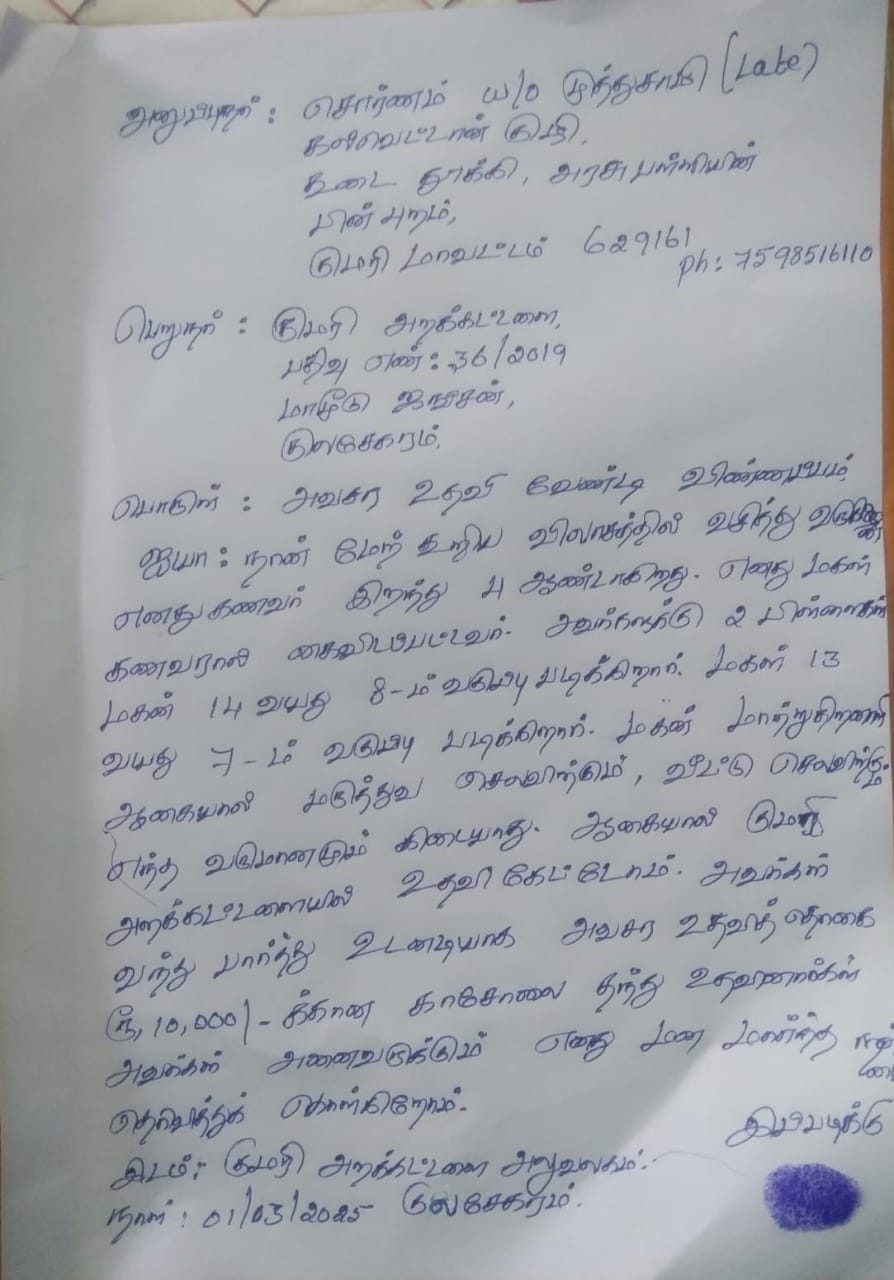 அனுப்புநர் : சொர்ணம் W/o முத்துசாமி (Late)
கல்வெட்டான் குழி,
நடை தூக்கி, அரசு பள்ளியின்
பின் புறம்,
குமரி மாவட்டம் 629161
Ph: 7598516110
பெறுநர் : குமரி அறக்கட்டளை,
பதிவு எண்: 36/2019
மாமூடு ஜங்சன்,
குலசேகரம்.
பொருள் : அவசர உதவி வேண்டி விண்ணப்பம்.
ஐயா : நான் மேற் கூறிய விலாசத்தில் வசித்து
எனது கணவர் இறந்து 4 ஆண்டாகிறது. எனது மகள்
கணவரால் கைவிடப்பட்டவர். அவர்களுக்கு 2 பிள்ளைகள்
மகன் 14 வயது 8-ம் வகுப்பு படிக்கிறார். மகள் 13
வயது 7-ம் வகுப்பு படிக்கிறார். மகன் மாற்றுதிறனாளி
ஆகையால் மருத்துவ செலவிற்கும், வீட்டு செலவிற்கும்
எந்த வருமானமும் கிடையாது. ஆகையால் குமரி
அறக்கட்டளையில் உதவி கேட்டோம். அவர்கள்
வந்து பார்த்து உடனடியாக அவசர உதவித் தொகை
ரூ, 10,000/- க்கான காசோலை தந்து உதவினார்கள்
அவர்கள் அனைவருக்கும் எனது மன மார்ந்த
தெரிவித்துக் கொள்கிறோம்.
இப்படிக்கு
இடம்: குமரி அறக்கட்டளை அலுவலகம்.
நாள் : 01/03/2025 குலசேகரம்.